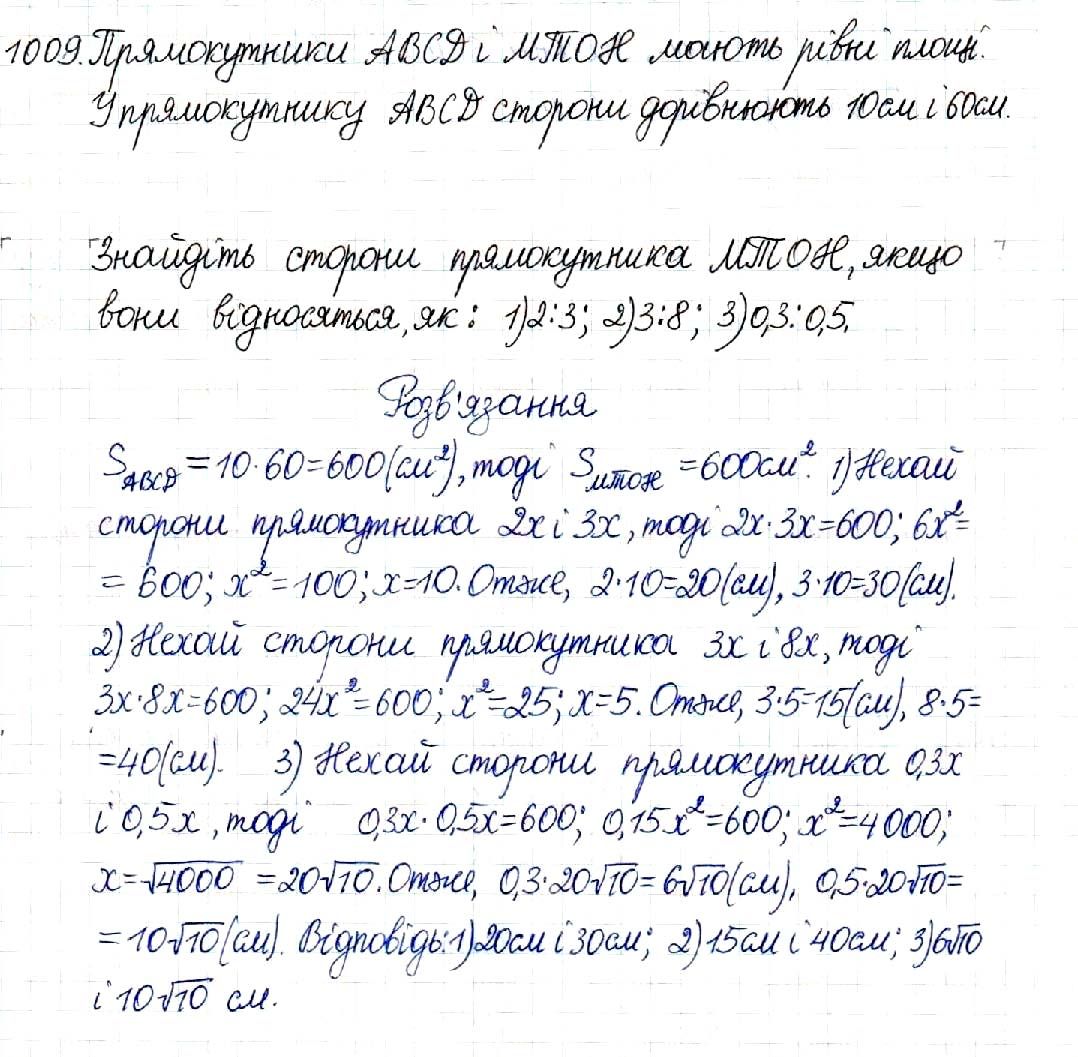 1009. Прямокутники ABCD і МТОН мають рівні площі.
У прямокутнику ABCD сторони дорівнюють 10см і 60см.
Знайдіть сторони прямокутника МТОН, якщо
вони відносяться, як: 1)2:3; 2)3:8; 3)0,3:0,5.
Розв'язання
S_ABCD = 10·60=600(см²), тоді S_МТОН = 600см². 1) Нехай
сторони прямокутника 2x і 3x, тоді 2x·3x=600; 6x²=
= 600; x²=100; x=10. Отже, 2·10=20(см), 3·10=30(см).
2) Нехай сторони прямокутника 3x і 8x, тоді
3x·8x=600; 24x²=600; x²=25; x=5. Отже, 3·5=15(см), 8·5=
=40(см). 3) Нехай сторони прямокутника 0,3x
і 0,5x, тоді 0,3x·0,5x=600; 0,15x²=600; x²=4000;
x=√4000 =20√10. Отже, 0,3·20√10=6√10(см), 0,5·20√10=
=10√10(см). Відповідь: 1)20см і 30см; 2)15см і 40см; 3)6√10
і 10√10 см.